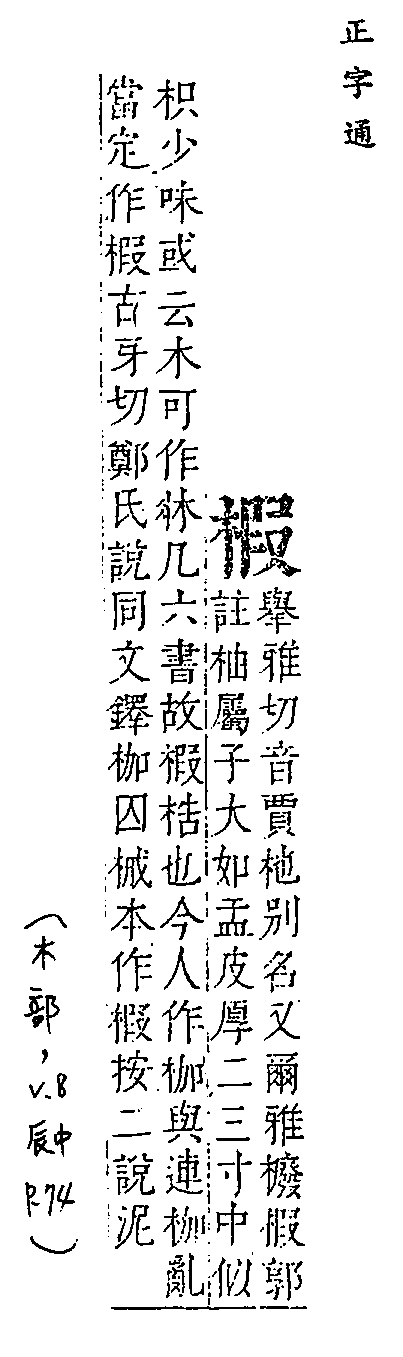 正字通
椵
舉雅切音賈柂別名又爾雅櫠椵郭
註柚屬子大如盂皮厚二三寸中似
枳少味或云木可作牀几六書故椵桔也今人作枷與連枷亂
當定作椵古牙切鄭氏說同文鐸枷囚械本作椵按二說泥
(木部,V.8
辰中
P.74)